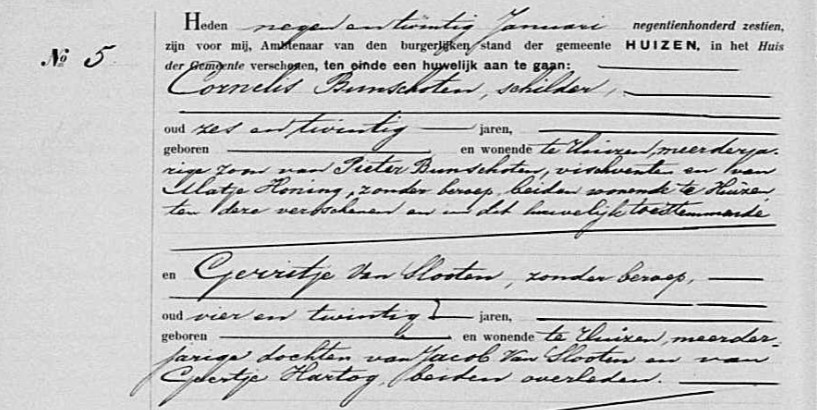 Heden negen en twintig Januari negentienhonderd zestien,
zijn voor mij, Ambtenaar van den burgerlijken stand der gemeente HUIZEN, in het Huis
No 5. der Gemeente verschenen, ten einde een huwelijk aan te gaan:
Cornelis Bunschoten, schilder,
oud zes en twintig jaren,
geboren en wonende te Huizen, meerderja-
rige zoon van Pieter Bunschoten, vischventer en van
Matje Honing, zonder beroep, beiden wonende te Huizen
ten deze verschenen en in dit huwelijk toestemmende
en Gerritje Van Slooten, zonder beroep,
oud vier en twintig jaren,
geboren en wonende te Huizen, meerder-
jarige dochter van Jacob Van Slooten en van
Geertje Hartog, beiden overleden.